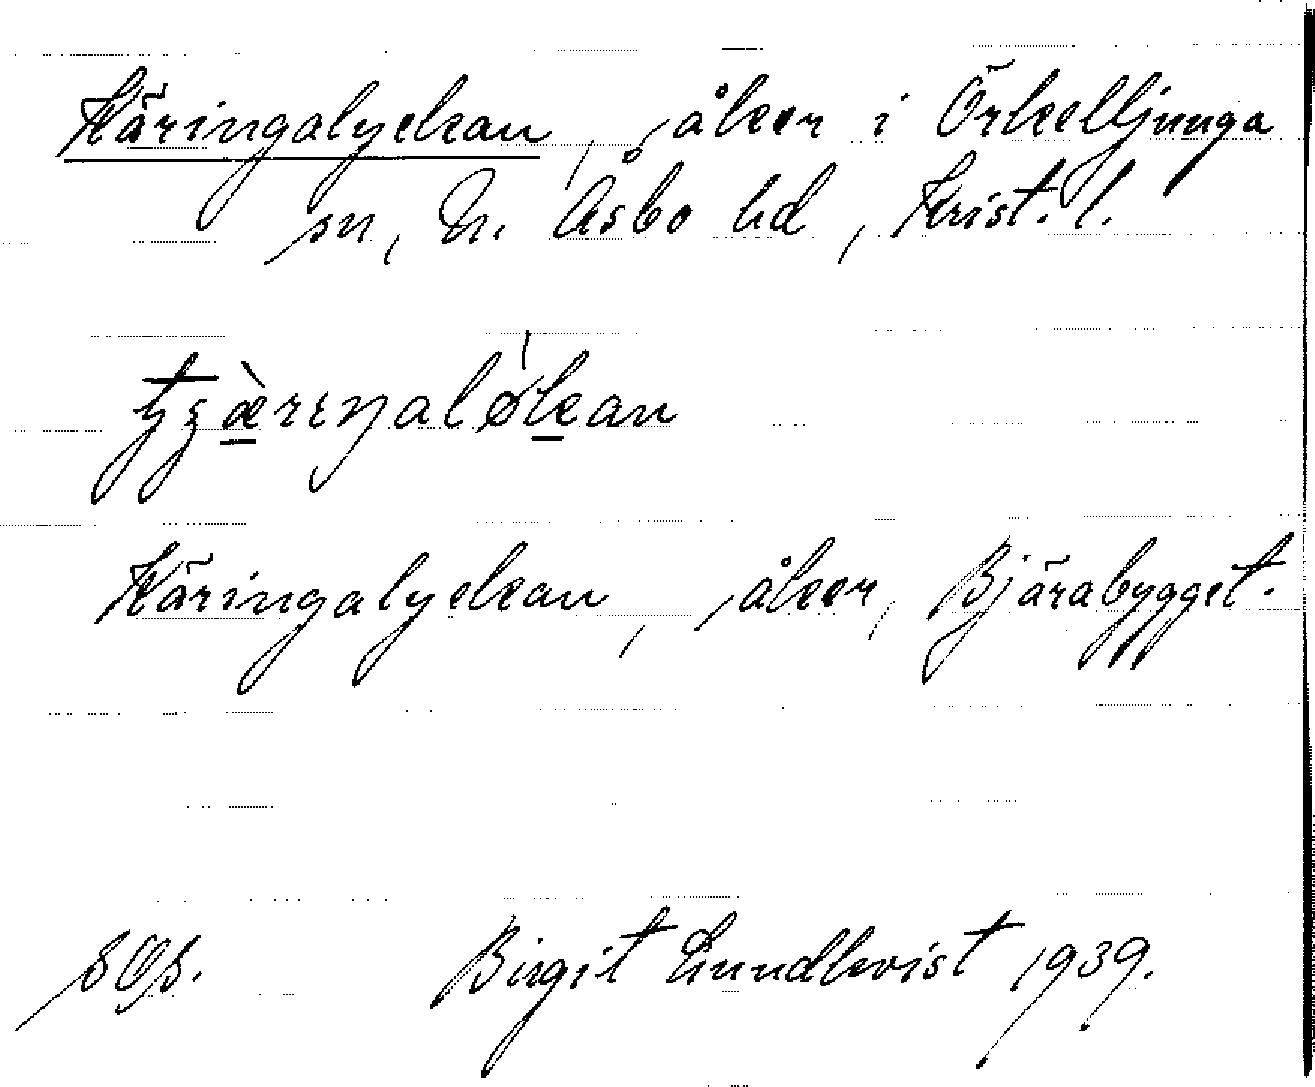 Käringalyckan, åker i Örkelljunga
sn, N. Åsbo hd, Krist. l.
Käringalyckan, åker, Bjärabygget.
Birgit Lundkvist 1939.